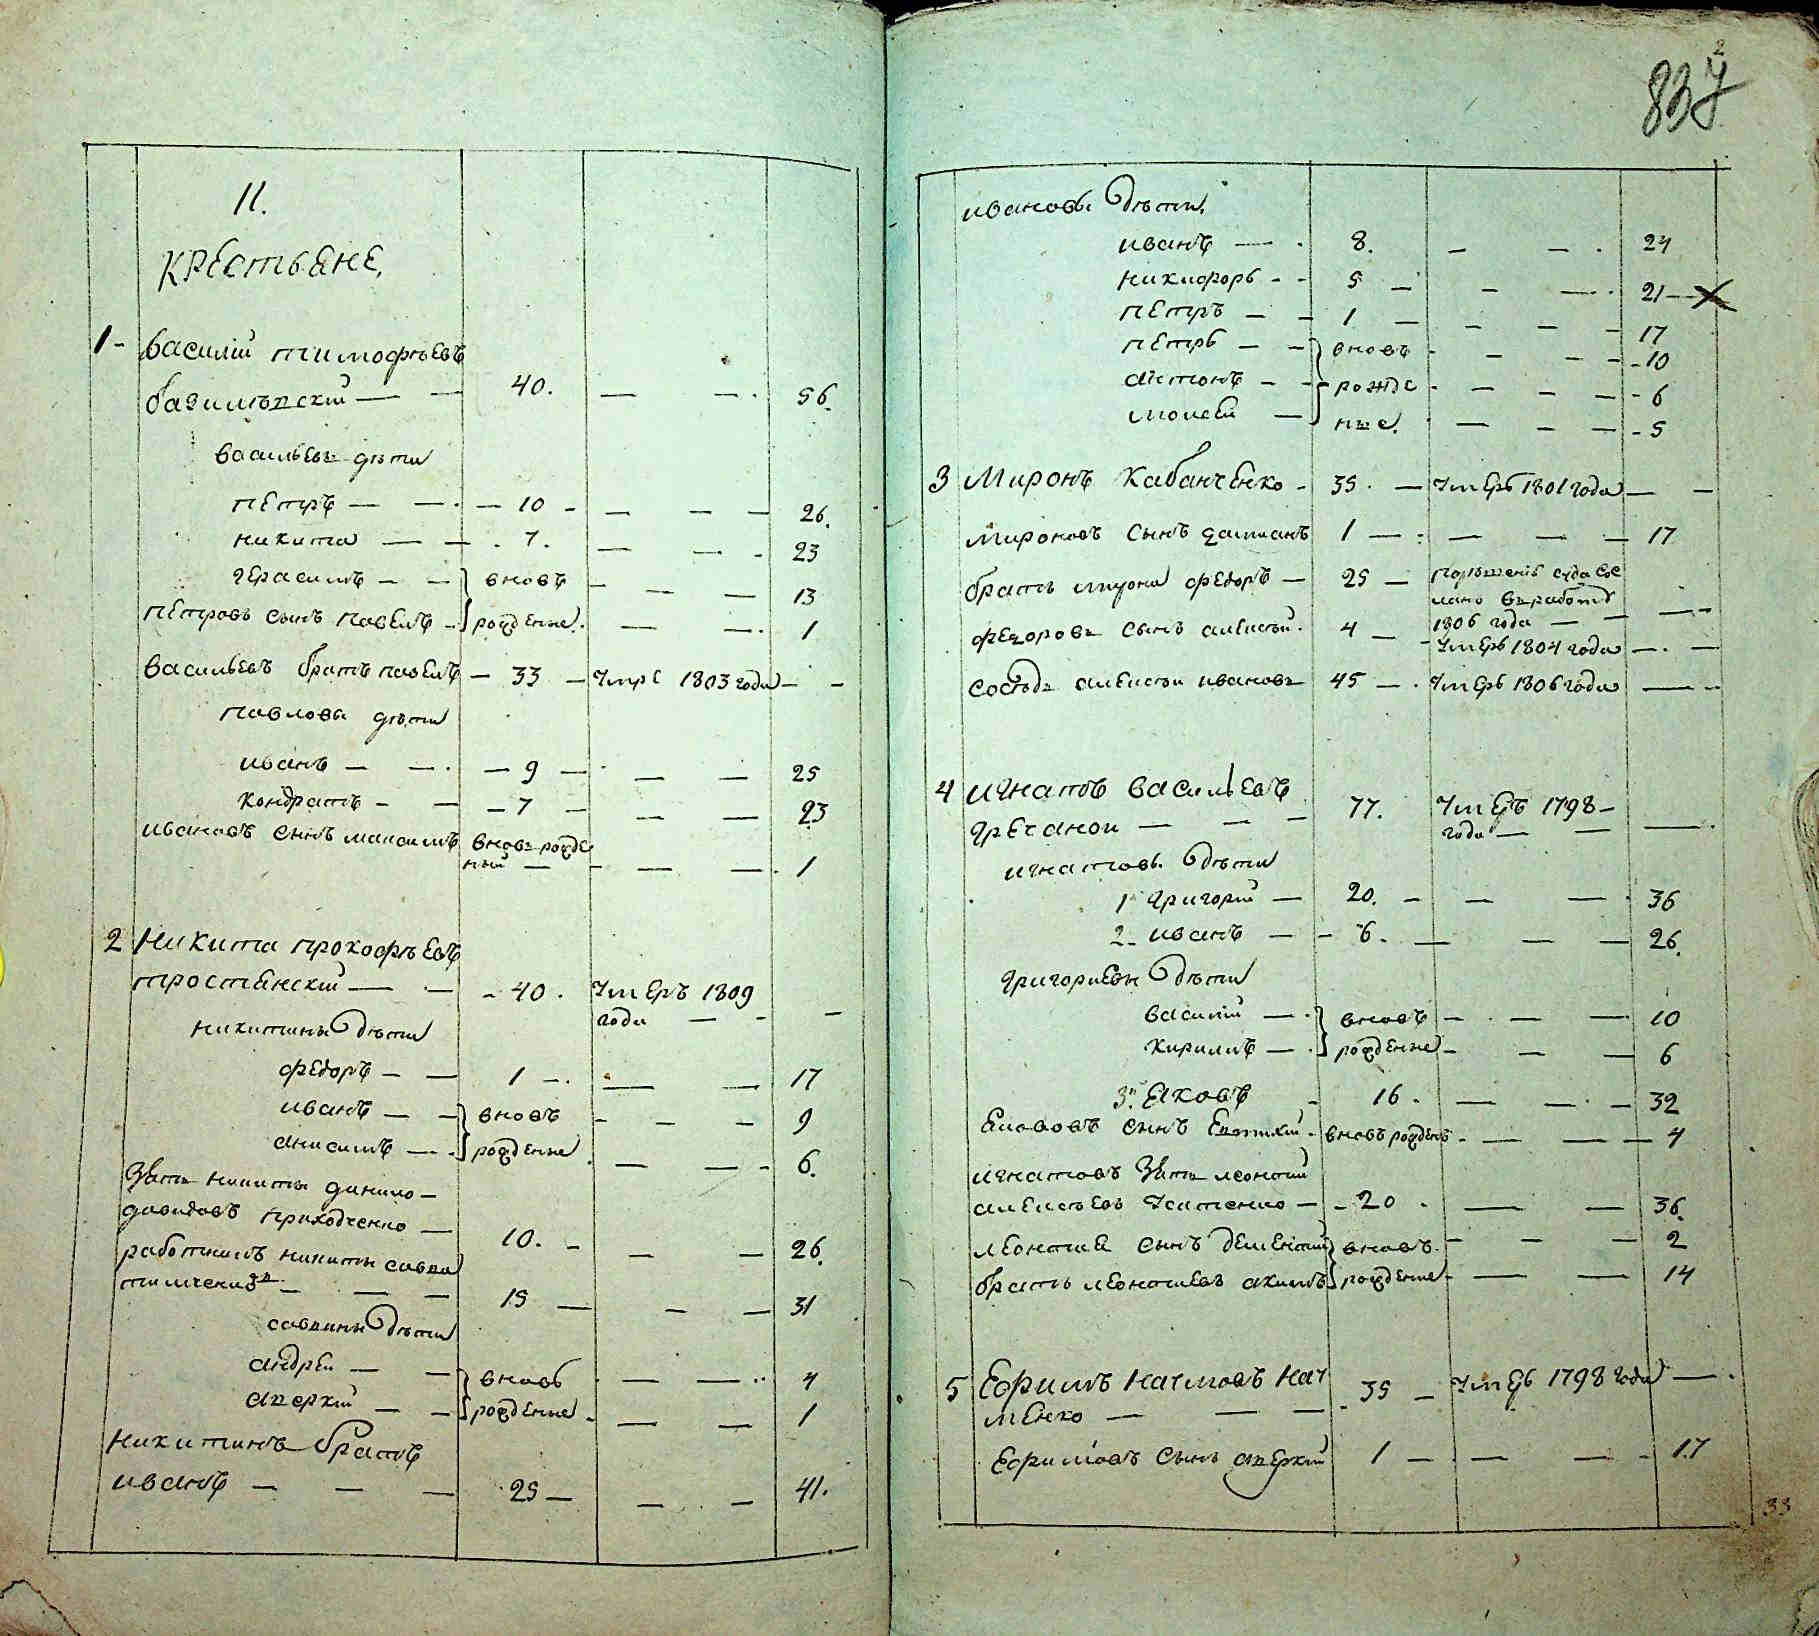 11.
Крестьяне.
1 - Василій Тимофѣевъ
Базилѣвскій — — 40. — — . 56.
Васильевы дѣти
Петръ — — . — 10 - — — — 26.
Никита — — . 7. — — . - 23
Герасимъ — — } вновь — — — 13
Петровъ сынъ Павелъ - } рожденные. — — . 1
Васильевъ братъ Павелъ — 33 — Умре 1803 года — -
Павловы дѣти
Иванъ — — . — 9 — — — 25
Кондратъ - — — 7 — — — 23
Ивановъ сынъ Максимъ вновь рожде
ный — - — — . 1
2 Никита Прокофьевъ
Тростянскій — — - 40 . Умеръ 1809
года — - —
Никитины дѣти
Федоръ — — 1 — . — — 17
Иванъ — — } вновь - - - 9
Анисимъ — . } рожденные . — — - 6.
Зять Никиты Данило
Давидовъ Приходченко — 10. - — — 26.
работникъ Никиты Савва
— — — 15 — — — 31
Саввины дѣти
Андрей — — } вновь . — — .. 4
Аверкий — — } рожденные . — — 1
Никитинъ братъ
Иванъ — — — 25 — — — 41.
2
837
Ивановы дѣти,
Иванъ — . 8. — — . 24
Никифоръ - - 5 — — — . 21 — X
Петръ — — 1 — — — — 17
Петръ — — } вновь - — — - 10
Антонъ - - } рожде - — — - 6
Моисей — } ные. — — — - 5
3 Миронъ Кабанченко - 35 . — Умеръ 1801 года — —
Мироновъ сынъ Дамианъ 1 — : — — — 17
братъ Мирона Федоръ — 25 — По рѣшенію суда сос
лано въ работу
1806 года — — — -
Федоровъ сынъ Алексѣй . 4 — - Умеръ 1804 года — . —
Сосѣдъ Алексѣй Ивановъ 45 — . Умеръ 1806 года — ..
4 Игнатъ Васильевъ
Гречаной — — - 77. Умеръ 1798 -
года — — — .
Игнатовы дѣти
1 Григорій — 20. - — — . 36
2 - Иванъ — - 6. — — — 26.
Григорьевы дѣти
Василій — . } вновь — . — — 10
Кирилъ — . } рожденные — — — 6
3й. Яковъ - 16 . — — . — 32
Яковъ сынъ - вновь рожденъ - — — — 4
Игнатовъ зять Леонтій
Алексѣевъ Усатенко — - 20 . — — 36.
Леонтія сынъ Дементий } вновь. — — — 2
братъ Леонтіевъ Акимъ } рожденные - — — 14
5 Ефимъ Наумовъ Нау
менко — — — - 35 — Умеръ 1798 года — .
Ефимовъ сынъ Аверкий 1 — . — — - 17
33